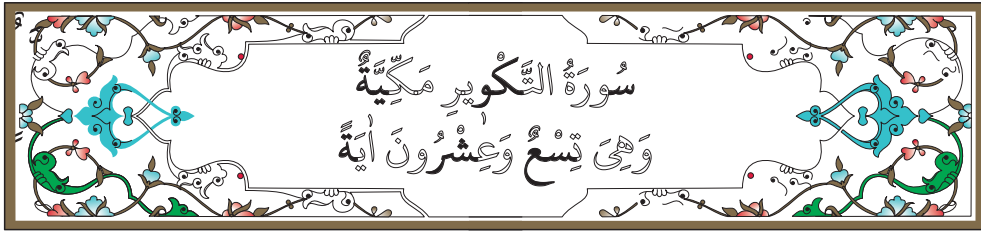 سُورَةُ التَّكْوِيرِ مَكِّيَّةٌ
وَهِىَ تِسْعٌ وَعِشْرُونَ اٰيَةً